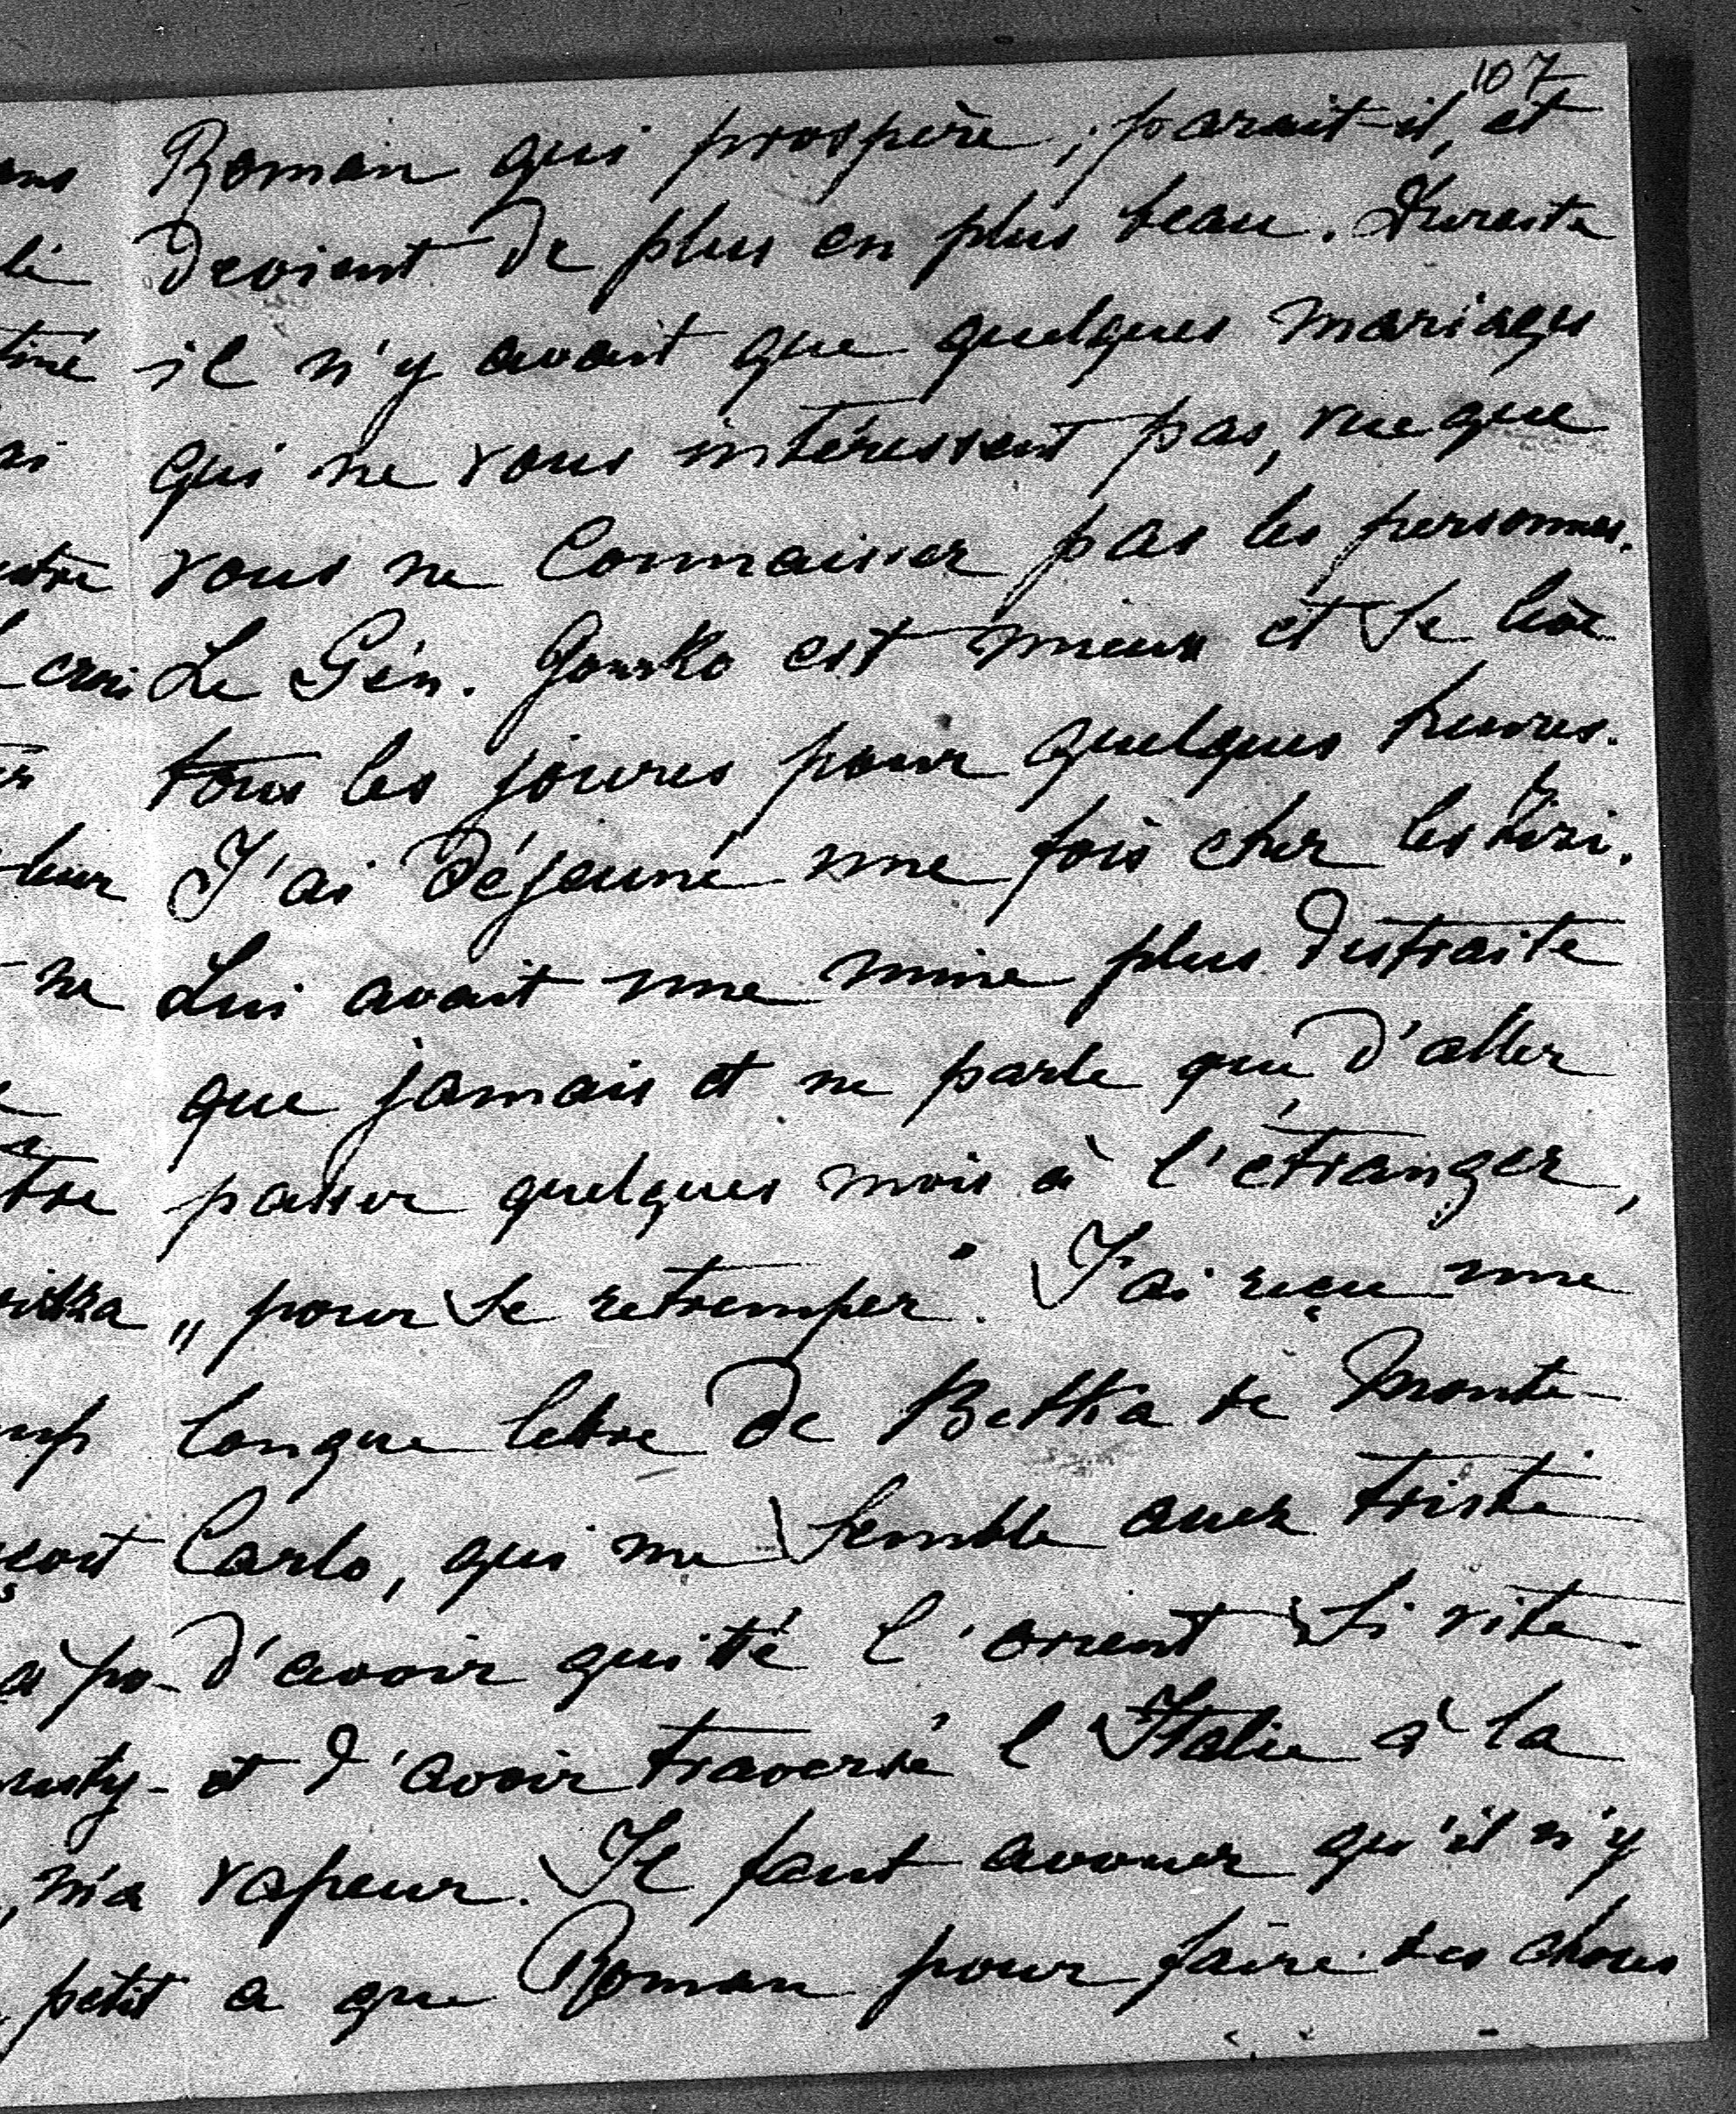 107
Roman qui prospère, parait-il, et
devient de plus en plus beau. Dureste
il n'y avait que quelques mariages
qui ne vous intéressent pas, vue que
vous ne connaissez pas les personnes.
Le Gén. Gourko est mieux et se lève
tous les joures pour quelques heures.
J'ai déjeuné une fois chez les
Lui avait une mine plus distraite
que jamais et ne parle que d'aller
passer quelques mois à l'étranger,
„pour se retremper". J'ai reçu une
longue lettre de Betka de Monte-
Carlo, qui me semble assez triste
d'avoir quité l'orient si vite
et d'avoir traversé l'Italie à la
vapeur. Il faut avouer qu'il n'y
a que Roman pour faire des choses